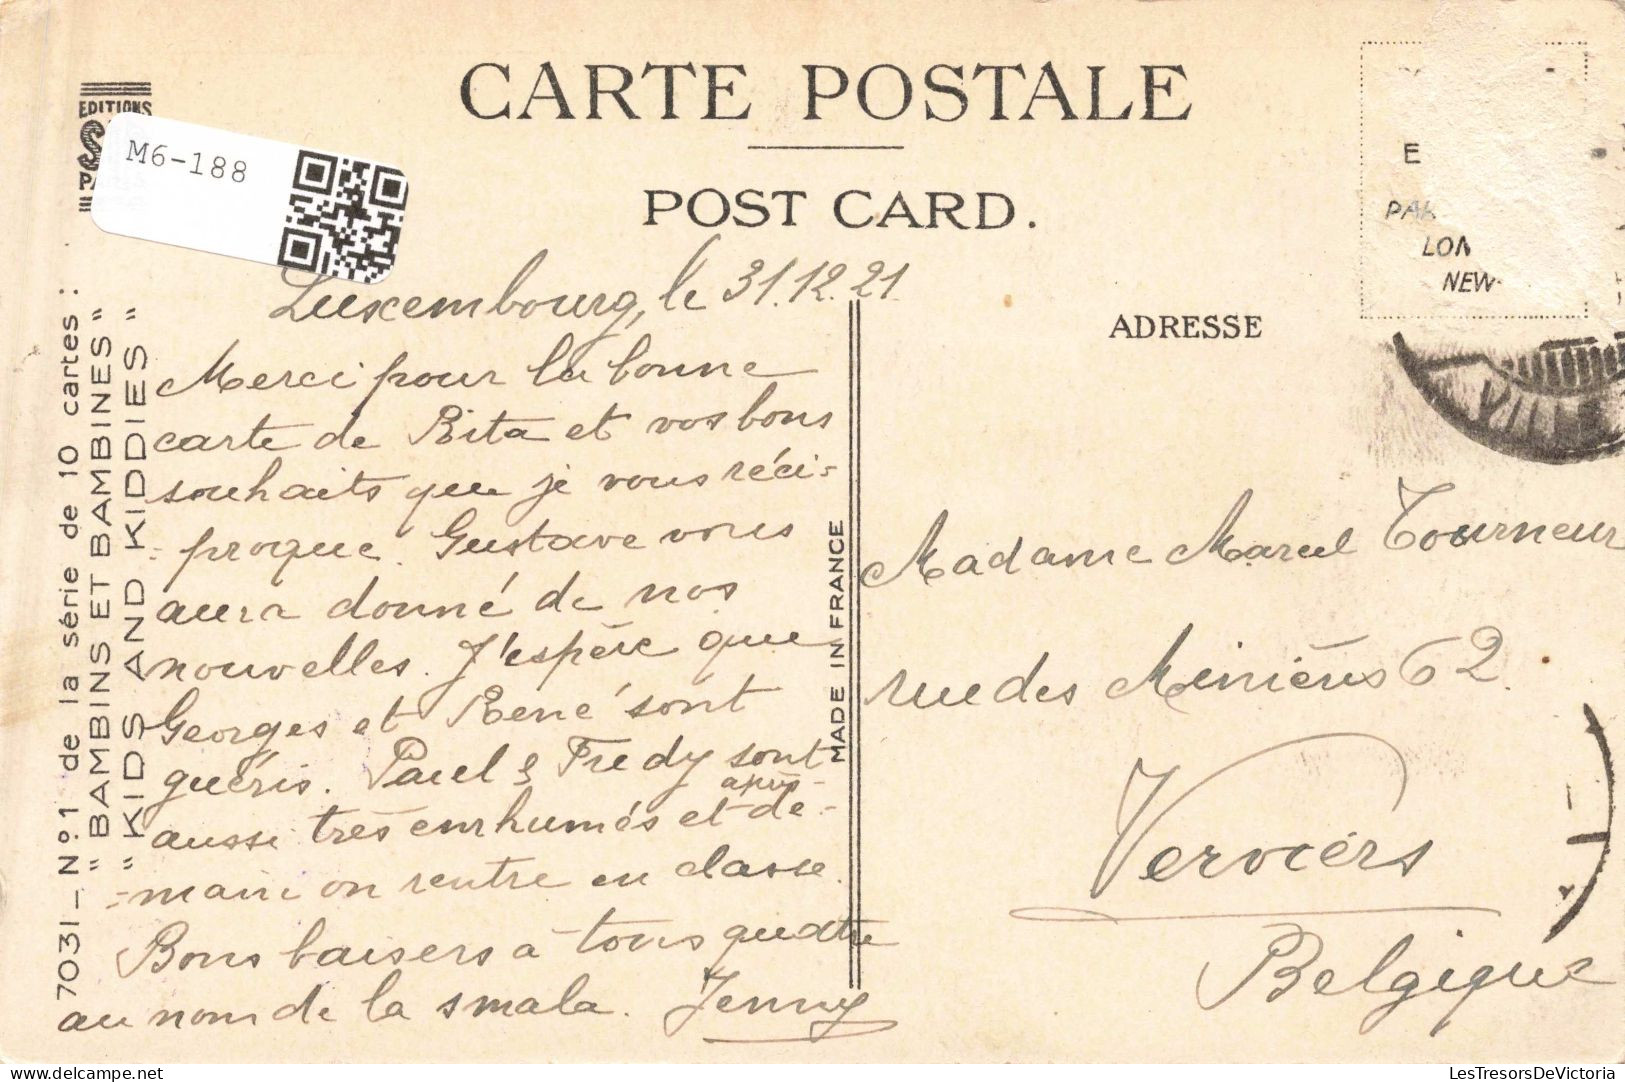 CARTE POSTALE
POST CARD.
EDITIONS
M6-188
E
LON
NEW
ADRESSE
VILLE
7031 - No. 1 de la série de 10 cartes :
" BAMBINS ET BAMBINES "
" KIDS AND KIDDIES "
MADE IN FRANCE
Luxembourg, le 31.12.21
Merci pour la bonne
carte de Rita et vos bons
souhaits que je vous réci=
=proque. Gustave vous
aura donné de nos
nouvelles. J'espère que
Georges et René sont
guéris. Paul & Fredy sont
aussi très enrhumés et après-de-
=main on rentre en classe.
Bons baisers à tous quatre
au nom de la smala. Jenny
Madame Marcel Tourneur
rue des Minières 62.
Verviers
Belgique
delcampe.net
LesTresorsDeVictoria